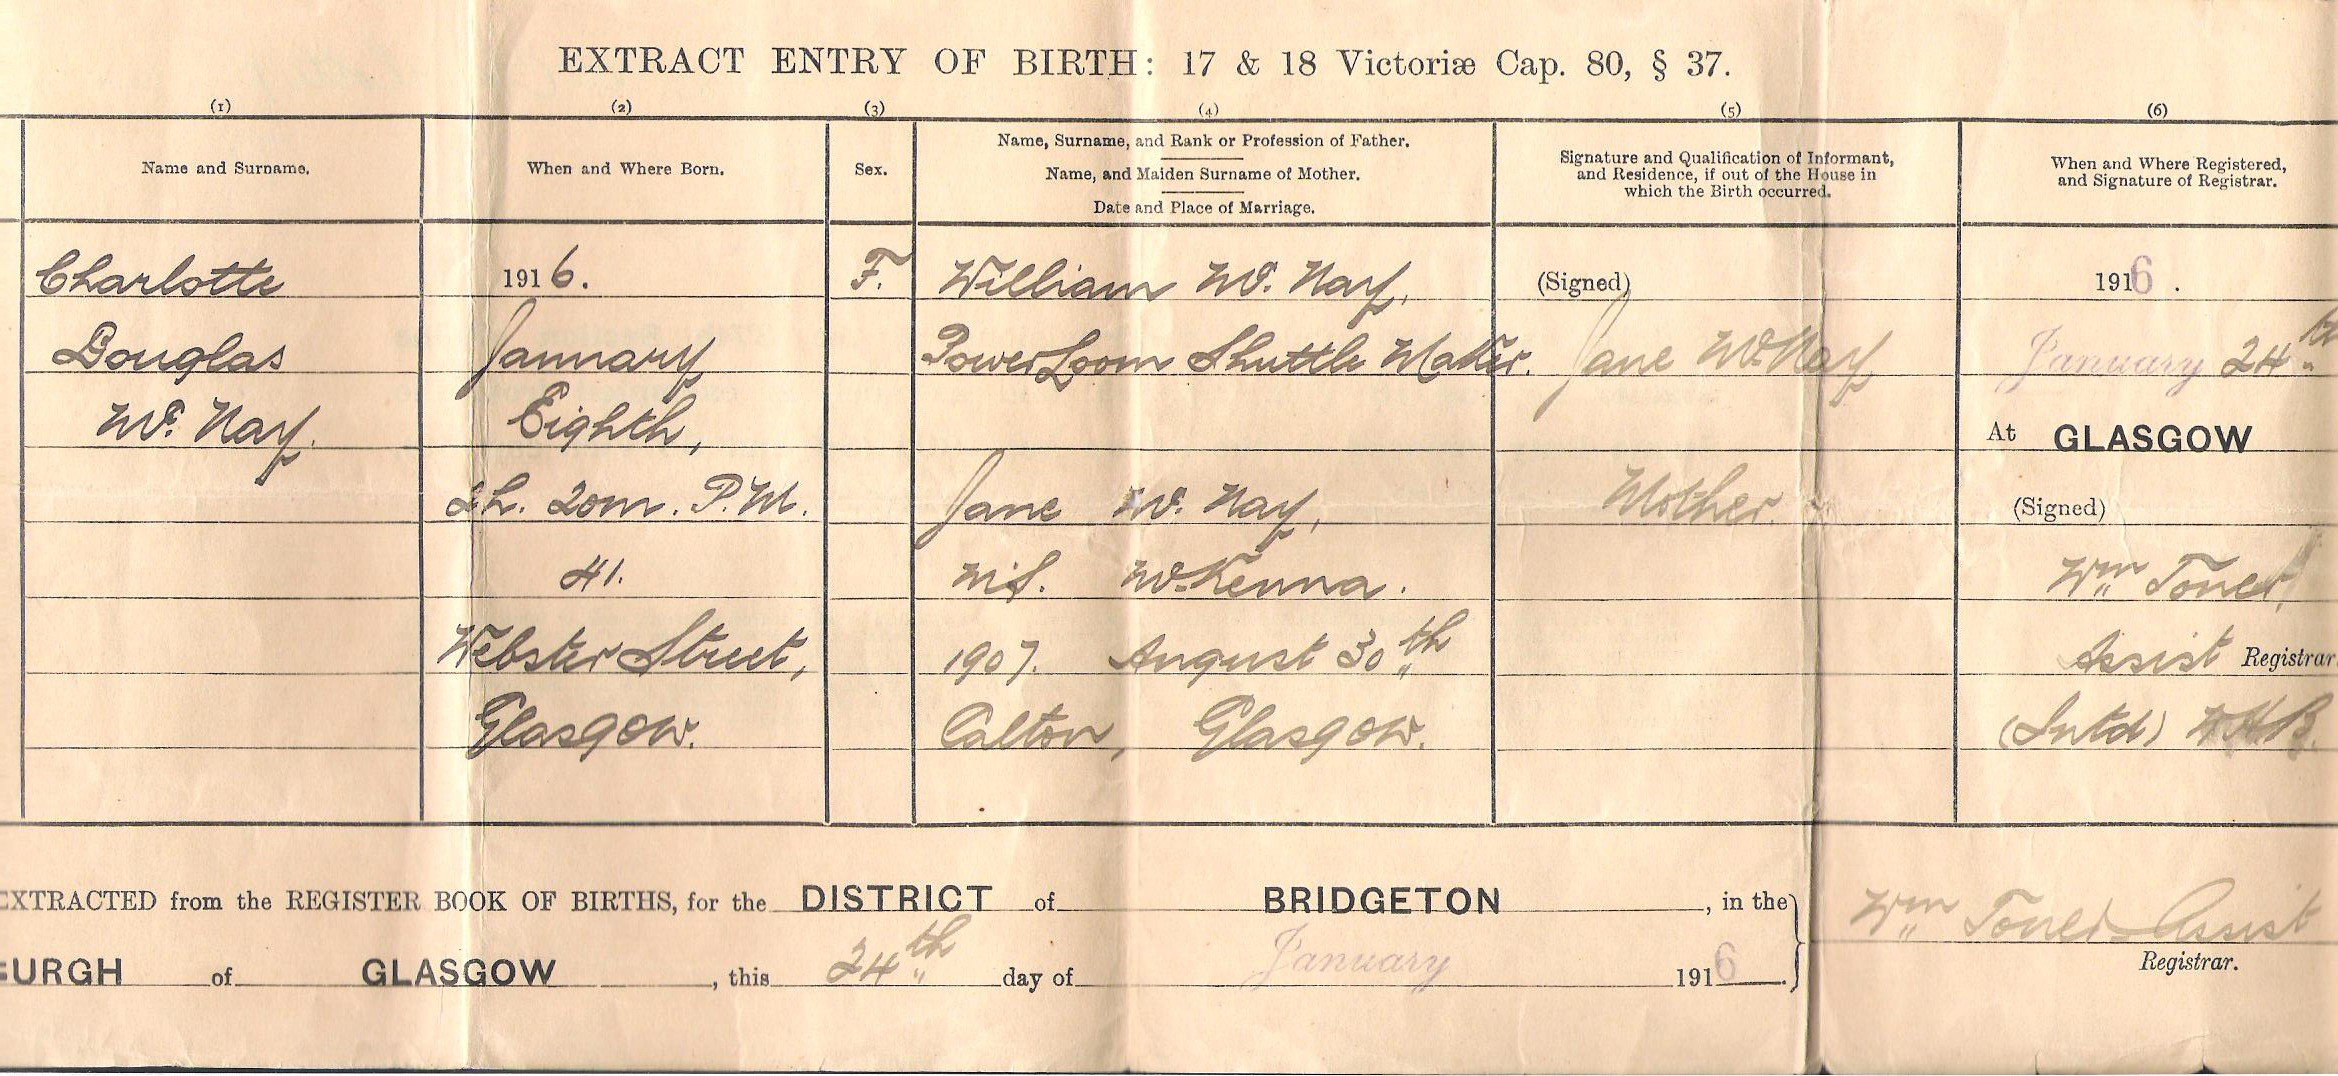 EXTRACT ENTRY OF BIRTH: 17 & 18 Victoriæ Cap. 80, § 37.
(1) (2) (3) (4) (5) (6)
Name and Surname.
When and Where Born.
Sex.
Name, Surname, and Rank or Profession of Father.
Name, and Maiden Surname of Mother.
Date and Place of Marriage.
Signature and Qualification of Informant,
and Residence, if out of the House in
which the Birth occurred.
When and Where Registered,
and Signature of Registrar.
Charlotte
Douglas
Mc. Nay.
1916.
January
Eighth,
2h. 20m. P.M.
41.
Webster Street,
Glasgow.
F.
William Mc. Nay,
Power Loom Shuttle Maker.
Jane Mc. Nay,
M.S. McKenna.
1907. August 30th
Calton, Glasgow.
(Signed)
Jane Mc. Nay
Mother.
1916.
January 24th
At GLASGOW
(Signed)
Wm Toner,
Assist Registrar
(Intd) W.H.B.
EXTRACTED from the REGISTER BOOK OF BIRTHS, for the DISTRICT of BRIDGETON, in the
BURGH of GLASGOW, this 24th day of January 1916.
Wm Toner Assist
Registrar.